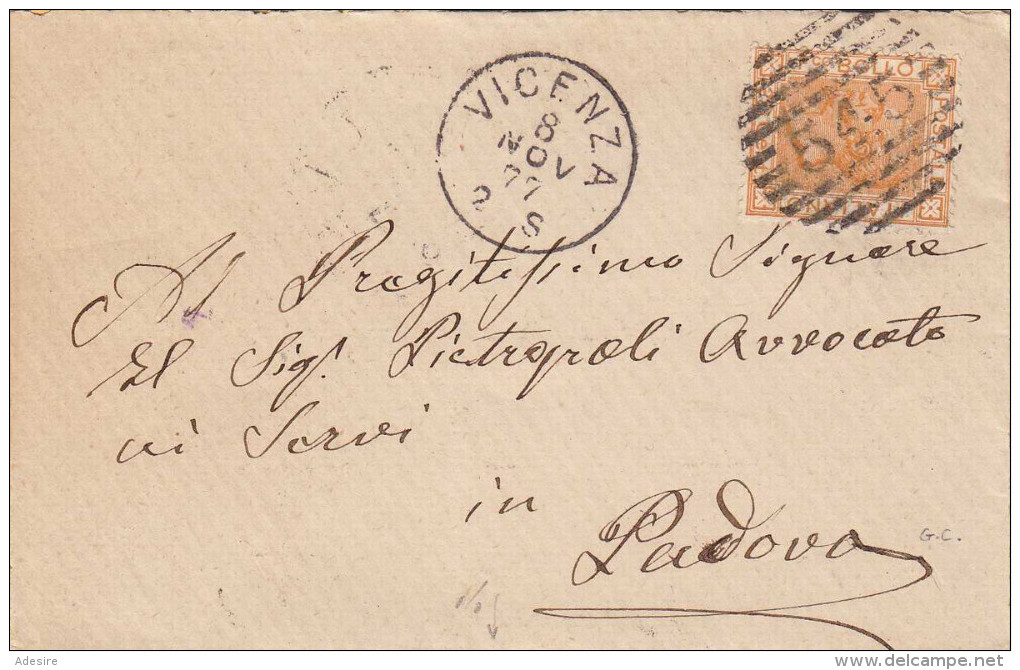 VICENZA
8
NOV
77
2 S
Co BOLLO
POSTALE
ITALIANO
545
Al Pregitissimo Signore
El Sigr. Pietropoli Avvocato
ai Servi
in
Padova
G.C.
Adesire
delcampe.net